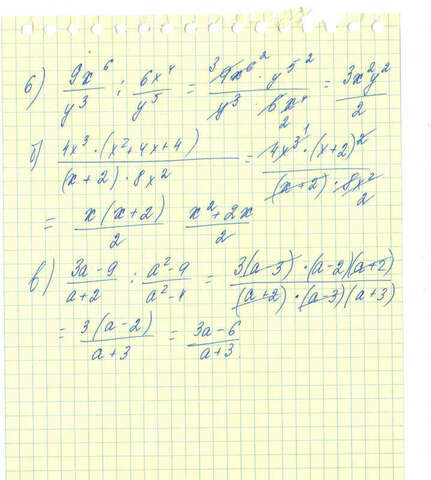 б) 9x⁶/y³ : 6x⁴/y⁵ = 9x⁶ · y⁵/y³ · 6x⁴ = 3x²y²/2
б) 4x³ · (x² + 4x + 4)/(x + 2) · 8x² = 4x³ · (x + 2)²/(x + 2) · 8x²
= x(x + 2)/2 x² + 2x/2
в) 3a - 9/a + 2 : a² - 9/a² - 4 = 3(a - 3) · (a - 2)(a + 2)/(a + 2) · (a - 3)(a + 3)
= 3(a - 2)/a + 3 = 3a - 6/a + 3